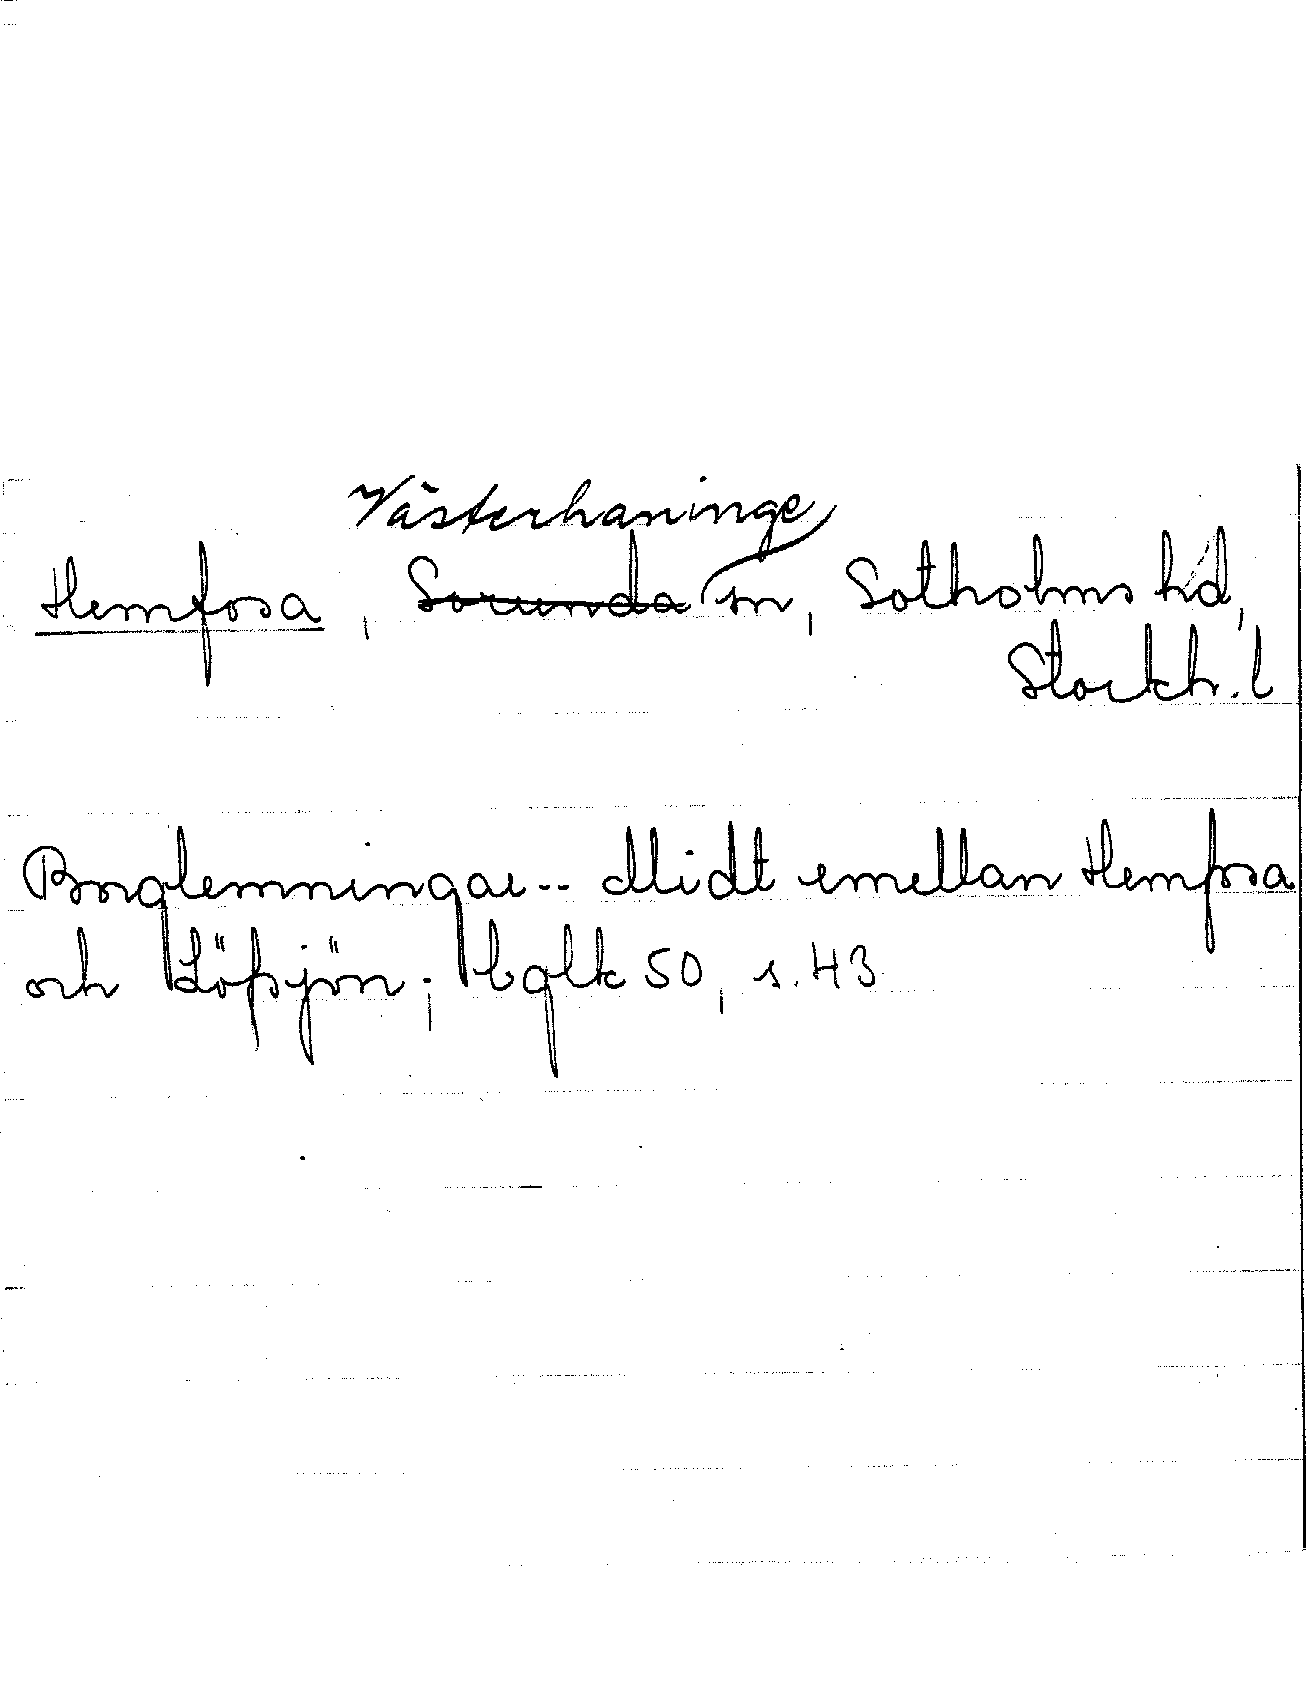 Västerhaninge
Hemfosa, Sorunda sn, Sotholms hd,
Stockh. l
Borglemningar.. Midt emellan Hemfosa
och Löfsjön; bglk 50, s. 43